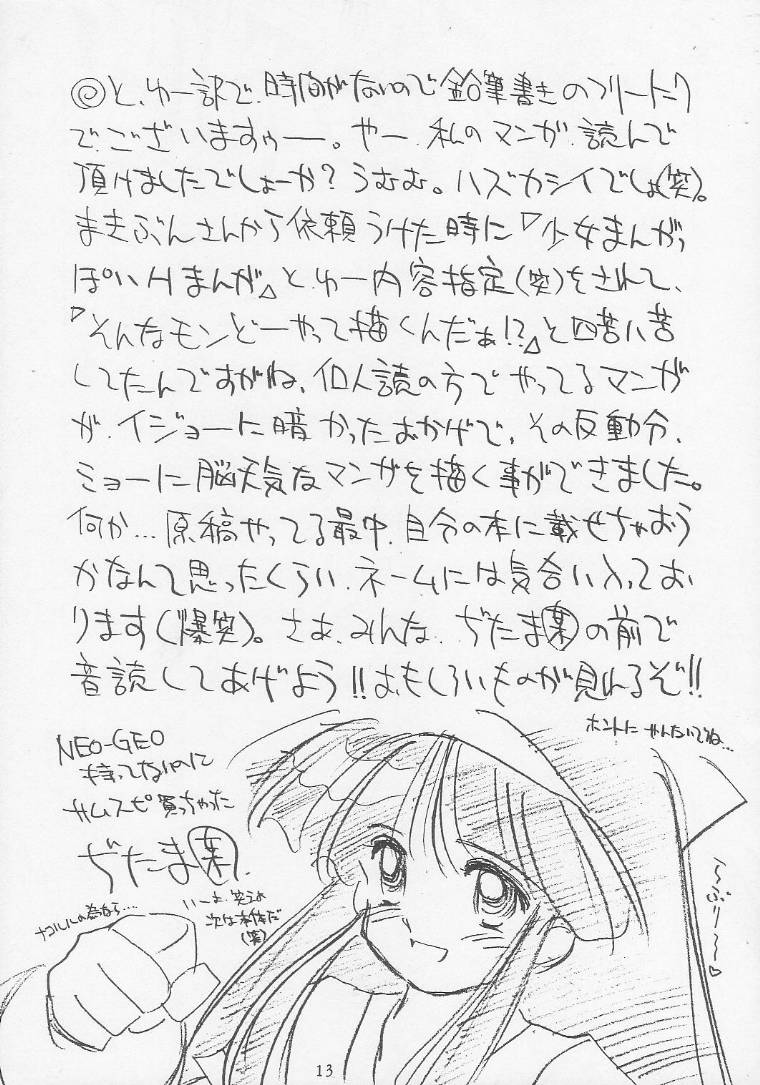 ◎と、ゆー訳で、時間がないので鉛筆書きのフリートーク
でございますぅー。やー、私のマンガ、読んで
頂けましたでしょーか?うむむ。ハズカシイでしょ(笑)。
まきぶんさんから依頼うけた時に『少女まんがっ
ぽいHまんが』と、ゆー内容指定(笑)をされて、
『そんなモンどーやって描くんだぁ!?』と四苦八苦
してたんですがね、個人誌の方でやってるマンガ
が、イジョーに暗かったおかげで、その反動分、
ミョーに脳天気なマンガを描く事ができました。
何か…原稿やってる最中、自分の本に載せちゃおう
かなんて思ったくらい、ネームには気合い入ってお
ります(爆笑)。さあ、みんな、ぢたま㊙の前で
音読してあげよう!!おもしろいものが見れるぞ!!
ホントに やんないでね…
NEO-GEO
持ってないのに
サムスピ買っちゃった
ぢたま
いーよ、笑うよ
次は本体だ
(笑)
ナコルルの為なら…
〜ぶりー〜♡
13